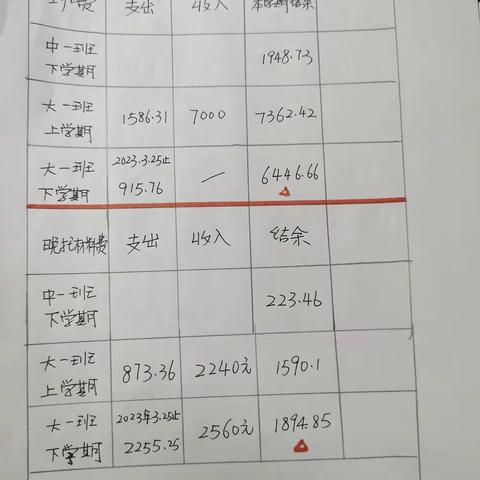 班费 支出 收入 本学期结余
中一班
下学期 1948.73
大一班
上学期 1586.31 7000 7362.42
大一班 2023.3.25止
下学期 915.76 — 6446.66
晚托材料费 支出 收入 结余
中一班
下学期 223.46
大一班
上学期 873.36 2240元 1590.1
大一班 2023年3.25止
下学期 2255.25 2560元 1894.85